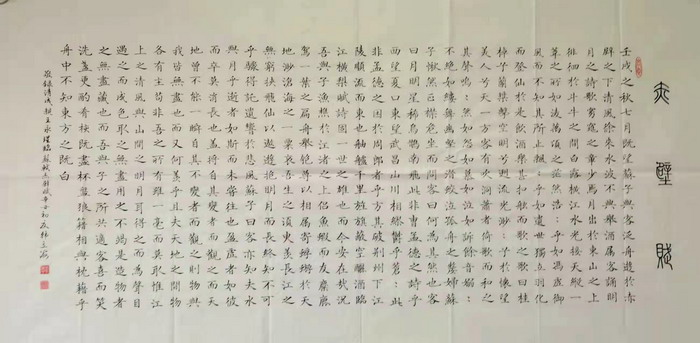 赤壁賦
壬戌之秋七月既望蘇子與客泛舟遊於赤
壁之下清風徐來水波不興舉酒屬客誦明
月之詩歌窈窕之章少焉月出於東山之上
徘徊於斗牛之間白露橫江水光接天縱一
葦之所如凌萬頃之茫然浩浩乎如馮虛御
風而不知其所止飄飄乎如遺世獨立羽化
而登仙於是飲酒樂甚扣舷而歌之歌曰桂
棹兮蘭槳擊空明兮溯流光渺渺兮於懷望
美人兮天一方客有吹洞簫者倚歌而和之
其聲嗚嗚然如怨如慕如泣如訴餘音嫋嫋
不絕如縷舞幽壑之潛蛟泣孤舟之嫠婦蘇
子愀然正襟危坐而問客曰何為其然也客
曰月明星稀烏鵲南飛此非曹孟德之詩乎
西望夏口東望武昌山川相繆鬱乎蒼蒼此
非孟德之困於周郎者乎方其破荊州下江
陵順流而東也舳艫千里旌旗蔽空釃酒臨
江橫槊賦詩固一世之雄也而今安在哉況
吾與子漁樵於江渚之上侶魚蝦而友麋鹿
駕一葉之扁舟舉匏尊以相屬寄蜉蝣於天
地渺滄海之一粟哀吾生之須臾羨長江之
無窮挾飛仙以遨遊抱明月而長終知不可
乎驟得託遺響於悲風蘇子曰客亦知夫水
與月乎逝者如斯而未嘗往也盈虛者如彼
而卒莫消長也蓋將自其變者而觀之則天
地曾不能一瞬自其不變者而觀之則物與
我皆無盡也而又何羨乎且夫天地之間物
各有主苟非吾之所有雖一毫而莫取惟江
上之清風與山間之明月耳得之而為聲目
遇之而成色取之無禁用之不竭是造物者
之無盡藏也而吾與子之所共適客喜而笑
洗盞更酌肴核既盡杯盤狼籍相與枕藉乎
舟中不知東方之既白
敬錄清成親王永瑆臨蘇軾赤壁賦辛丑初夏林立